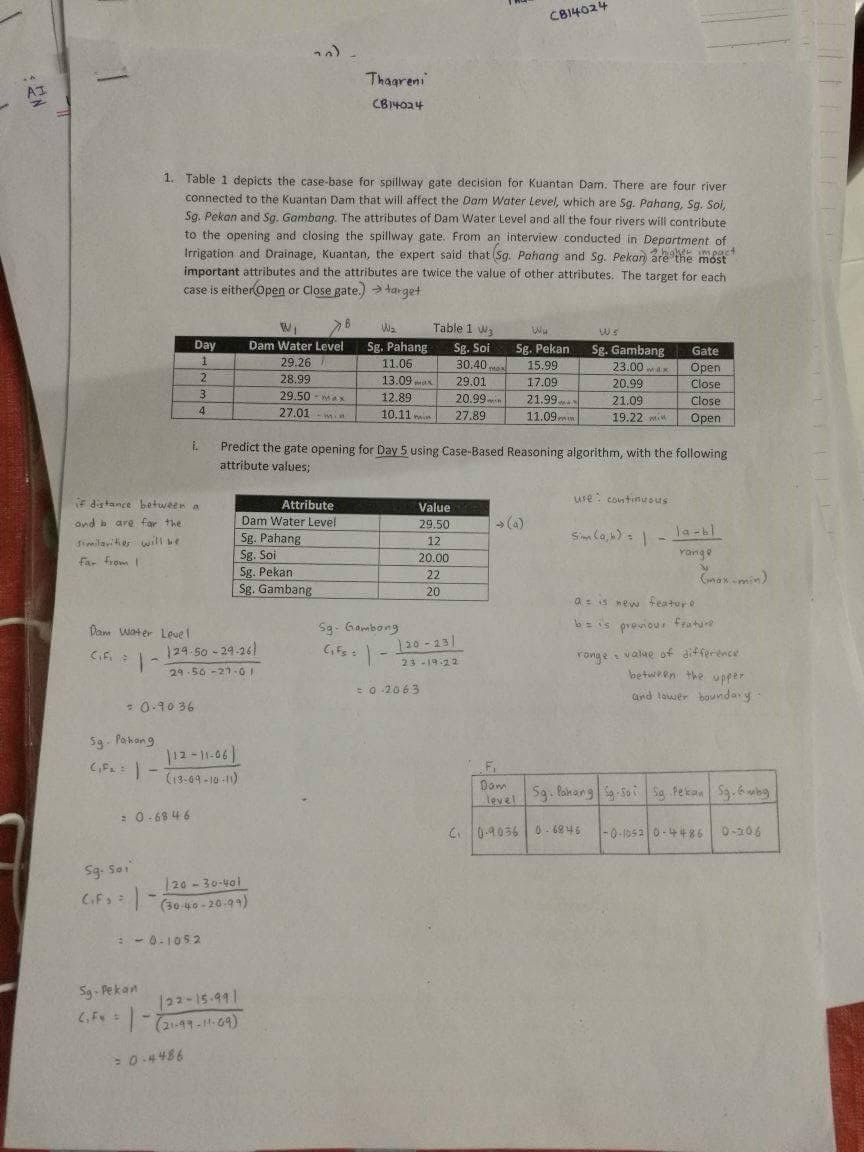 CB14024
AI
Thagreni
CB14024
1. Table 1 depicts the case-base for spillway gate decision for Kuantan Dam. There are four river
connected to the Kuantan Dam that will affect the Dam Water Level, which are Sg. Pahang, Sg. Soi,
Sg. Pekan and Sg. Gambang. The attributes of Dam Water Level and all the four rivers will contribute
to the opening and closing the spillway gate. From an interview conducted in Department of
→ higher impact
Irrigation and Drainage, Kuantan, the expert said that (Sg. Pahang and Sg. Pekan) are the most
important attributes and the attributes are twice the value of other attributes. The target for each
case is either (Open or Close gate.) → target
W1 → B W2 Table 1 W3 W4 W5
Day Dam Water Level Sg. Pahang Sg. Soi Sg. Pekan Sg. Gambang Gate
1 29.26 11.06 30.40 max 15.99 23.00 max Open
2 28.99 13.09 max 29.01 17.09 20.99 Close
3 29.50 - max 12.89 20.99 min 21.99 max 21.09 Close
4 27.01 - min 10.11 min 27.89 11.09 min 19.22 min Open
i. Predict the gate opening for Day 5 using Case-Based Reasoning algorithm, with the following
attribute values;
Attribute Value
Dam Water Level 29.50 → (a)
Sg. Pahang 12
Sg. Soi 20.00
Sg. Pekan 22
Sg. Gambang 20
if distance between a
and b are far the
similarities will be
far from 1
use : continuous
Sim (a,b) = 1 - |a-b|
range
(max-min)
a = is new feature
b = is previous feature
range = value of difference
between the upper
and lower boundary.
Dam Water Level
C1F1 = 1 - |29.50 - 29.26|
29.50 - 27.01
= 0.9036
Sg. Gambang
C1F5 = 1 - |20 - 23|
23 - 19.22
= 0.2063
Sg. Pahang
C1F2 = 1 - |12 - 11.06|
(13.09 - 10.11)
= 0.6846
F1
Dam level Sg. Pahang Sg. Soi Sg. Pekan Sg. Gmbg
C1 0.9036 0.6846 -0.1052 0.4486 0.206
Sg. Soi
C1F3 = 1 - |20 - 30.40|
(30.40 - 20.99)
= - 0.1052
Sg. Pekan
C1F4 = 1 - |22 - 15.99|
(21.99 - 11.09)
= 0.4486